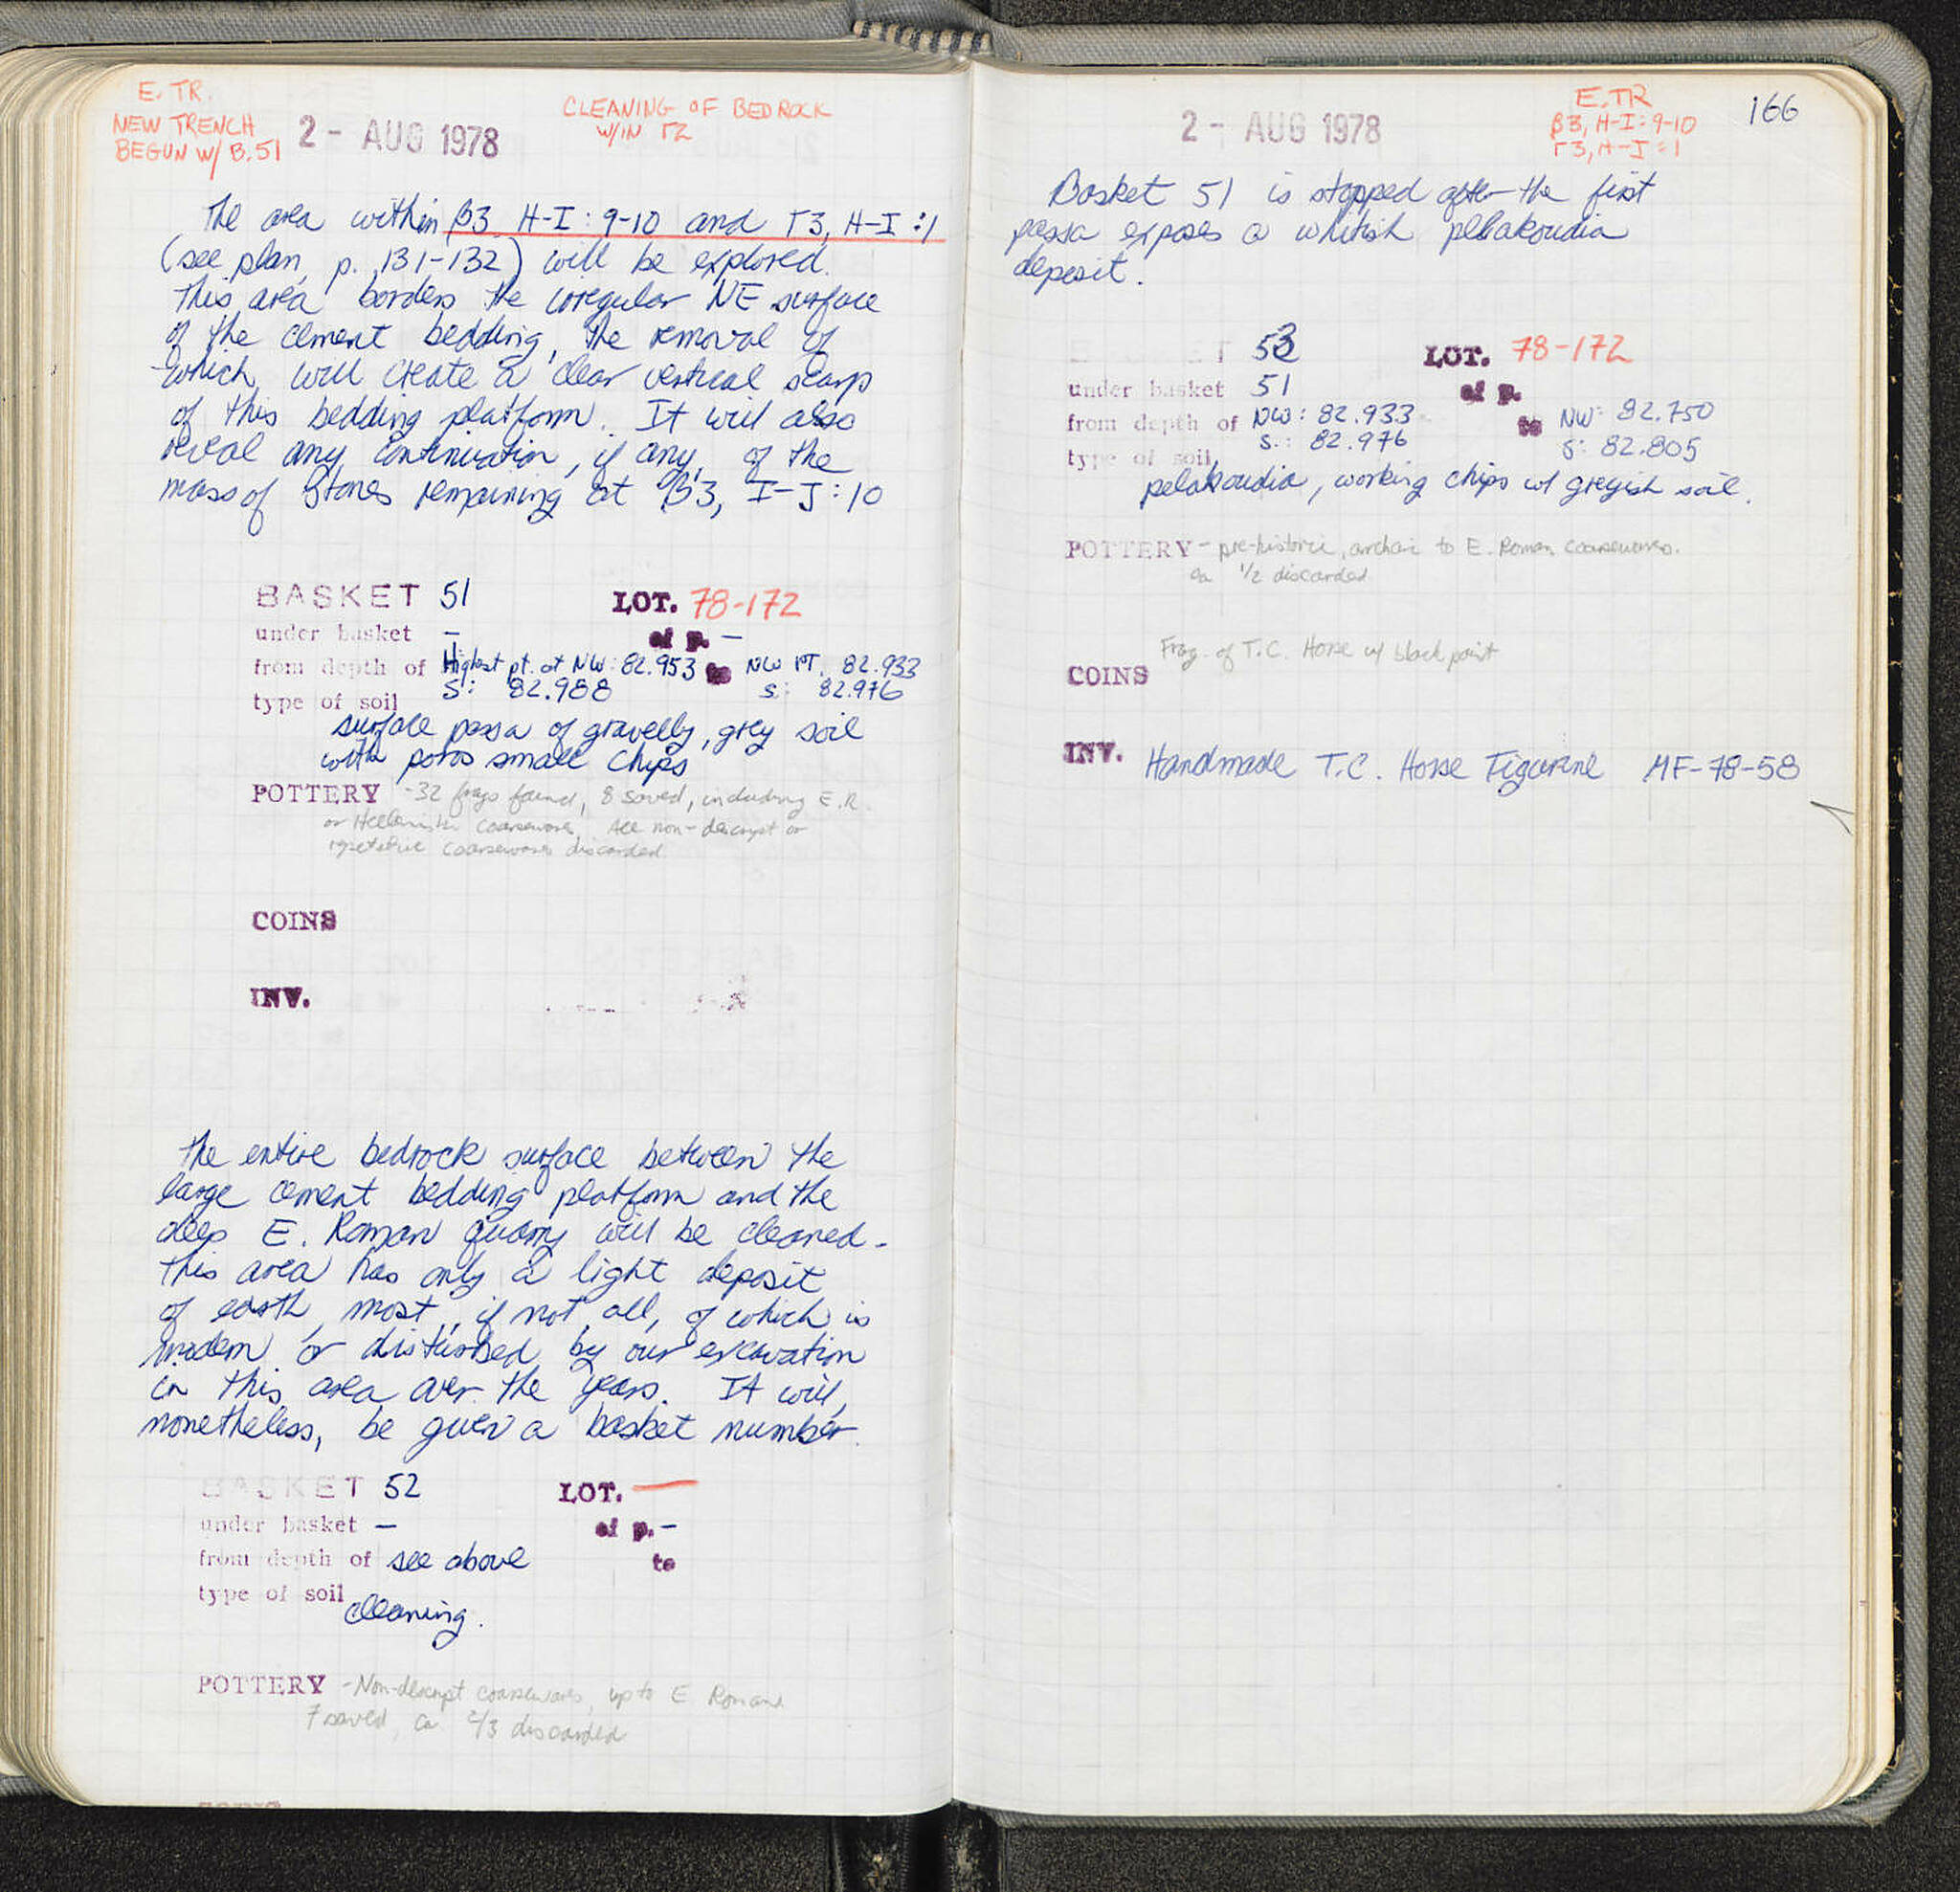 E. TR.
NEW TRENCH
BEGUN W/ B.51
2 - AUG 1978
CLEANING OF BEDROCK
W/IN Γ2
The area within β3 H-I : 9-10 and Γ3, H-I :1
(see plan, p. 131-132) will be explored.
This area borders the irregular NE surface
of the cement bedding, the removal of
which will create a clear vertical scarp
of this bedding platform. It will also
reveal any continuation, if any, of the
mass of stones remaining at β3, I-J : 10
BASKET 51 LOT. 78-172
under basket — of p. —
from depth of Highest pt. at NW: 82.953 to NW PT. 82.933
S: 82.988 S: 82.976
type of soil
surface passa of gravelly, grey soil
with poros small chips
POTTERY - 32 frags found, 8 saved, including E.R.
or Hellenistic coarseware. All non-descript or
repetitive coarsewares discarded
COINS
INV.
The entire bedrock surface between the
large cement bedding platform and the
deep E. Roman quarry will be cleaned.
This area has only a light deposit
of earth, most, if not all, of which is
modern or disturbed by our excavation
in this area over the years. It will,
nonetheless, be given a basket number.
BASKET 52 LOT. —
under basket — of p. —
from depth of see above to
type of soil
cleaning.
POTTERY - Non-descript coarsewares, up to E Roman
7 saved, ca 2/3 discarded
COINS
2 - AUG 1978
E.TR
β3, H-I : 9-10
Γ3, H-I : 1
166
Basket 51 is stopped after the first
passa exposes a whitish pelakoudia
deposit.
BASKET 53 LOT. 78-172
under basket 51 of p.
from depth of NW: 82.933 to NW: 82.750
S.: 82.976 S: 82.805
type of soil
pelakoudia, working chips w/ greyish soil.
POTTERY - pre-historic, archaic to E. Roman coarsewares.
ca 1/2 discarded
Frag. of T.C. Horse w/ black paint
COINS
INV. Handmade T.C. Horse Figurine MF-78-58